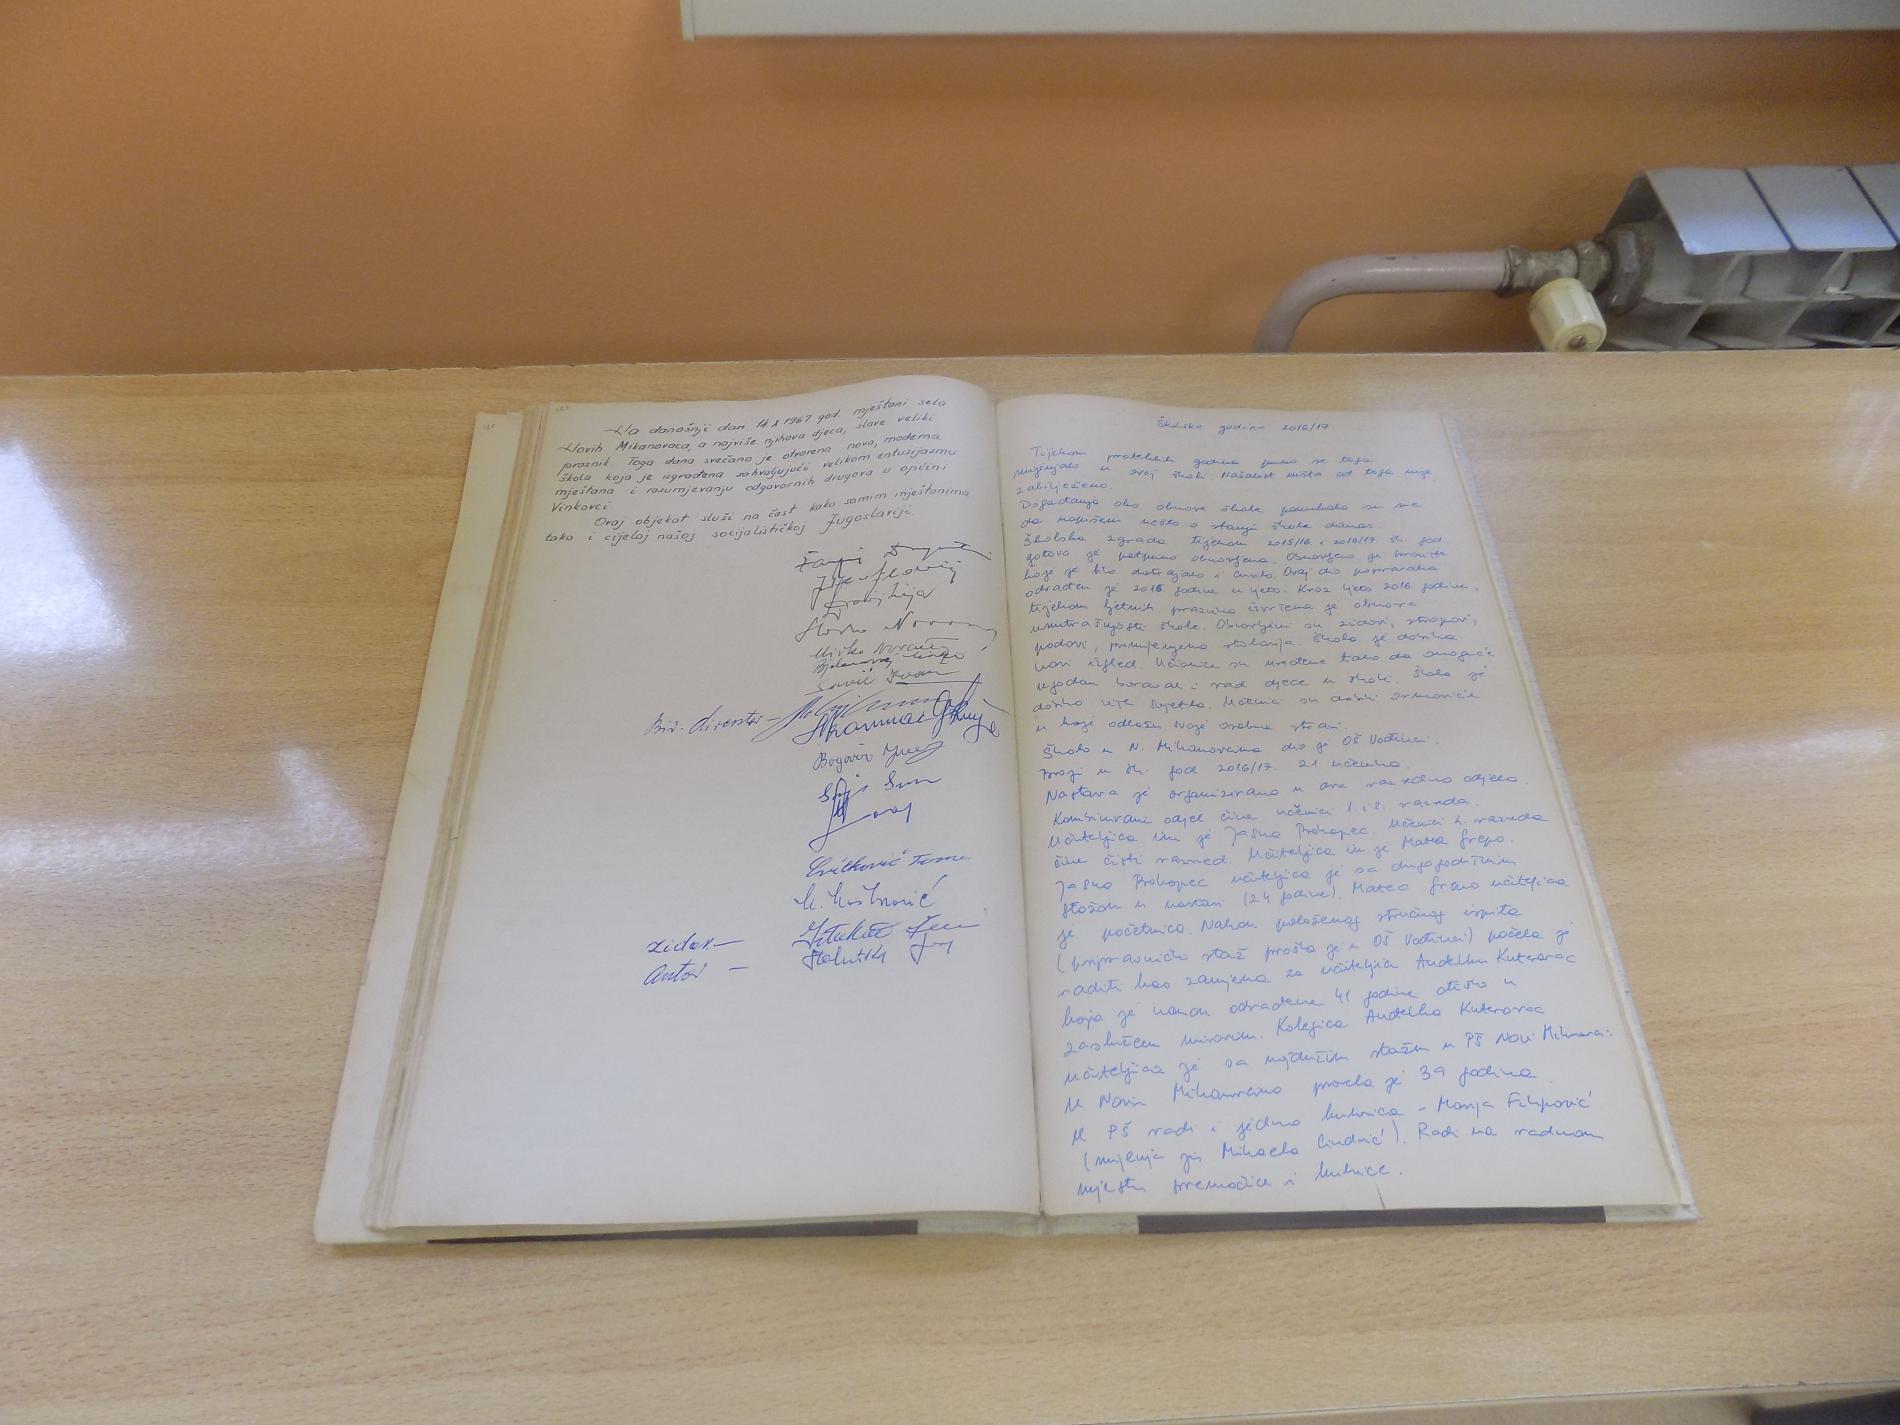 Na današnji dan 14.X 1967 god. mještani sela
Novih Mikanovaca, a najviše njihova djeca, slave veliki
praznik. Toga dana svečano je otvorena nova, moderna
škola koja je izgrađena zahvaljujući velikom entuzijazmu
mještana i razumjevanju odgovornih drugova u općini
Vinkovci.
Ovaj objekat služi na čast kako samim mještanima
tako i cijeloj našoj socijalističkoj Jugoslaviji.
Mirko
Savić Ivan
Biv. direktor –
Cvitković
zidar –
Autor –
Školska godina 2016/17.
Tijekom proteklih godina puno se toga
mijenjalo u ovoj školi. Nažalost ništa od toga nije
zabilježeno.
Događanja oko obnove škole ponukala su me
da napišem nešto o stanju škole danas.
Školska zgrada tijekom 2015/16. i 2016/17. šk. god.
gotovo je potpuno obnovljena. Obnovljeno je krovište
koje je bilo dotrajalo i curilo. Ovaj dio popravaka
odrađen je 2016 godine u ljeto. Kroz ljeto 2016. godine,
tijekom ljetnih praznika izvršena je obnova
unutrašnjosti škole. Obnovljeni su zidovi, stropovi,
podovi, promijenjena stolarija. Škola je dobila
novi izgled. Učionice su uređene tako da omoguće
ugodan boravak i rad djece u školi. Škola je
dobila više svjetla. Učenici su dobili ormariće
u koje odlažu svoje osobne stvari.
Škola u N. Mikanovcima dio je OŠ Vođinci.
Broji u šk. god 2016/17. 21 učenika.
Nastava je organizirana u dva razredna odjela.
Kombinirani odjel čine učenici 1. i 2. razreda.
Učiteljica im je Jasna Prokopec. Učenici 4. razreda
čine čisti razred. Učiteljica im je Matea Grepo.
Jasna Prokopec učiteljica je sa dugogodišnjim
stažom u nastavi (24 godine). Matea Grepo učiteljica
je početnica. Nakon položenog stručnog ispita
(pripravnički staž prošla je u OŠ Vođinci) počela je
raditi kao zamjena za učiteljicu Anđelku Kuterovac
koja je nakon odrađene 41 godine otišla u
zasluženu mirovinu. Kolegica Anđelka Kuterovac
učiteljica je sa najdužim stažem u PŠ Novi Mikanovci.
U Novim Mikanovcima provela je 39 godina.
U PŠ radi i jedna kuharica – Marija Filipović
(mijenja ju Mihaela Cindrić). Radi na radnom
mjestu spremačice i kuharice.